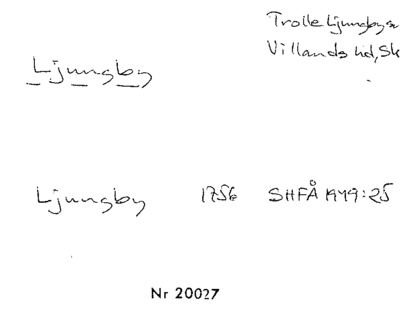 Trolle Ljungby sn
Villands hd, Sk
Ljungby
Ljungby 1756 SHFÅ 1949:25
Nr 20027